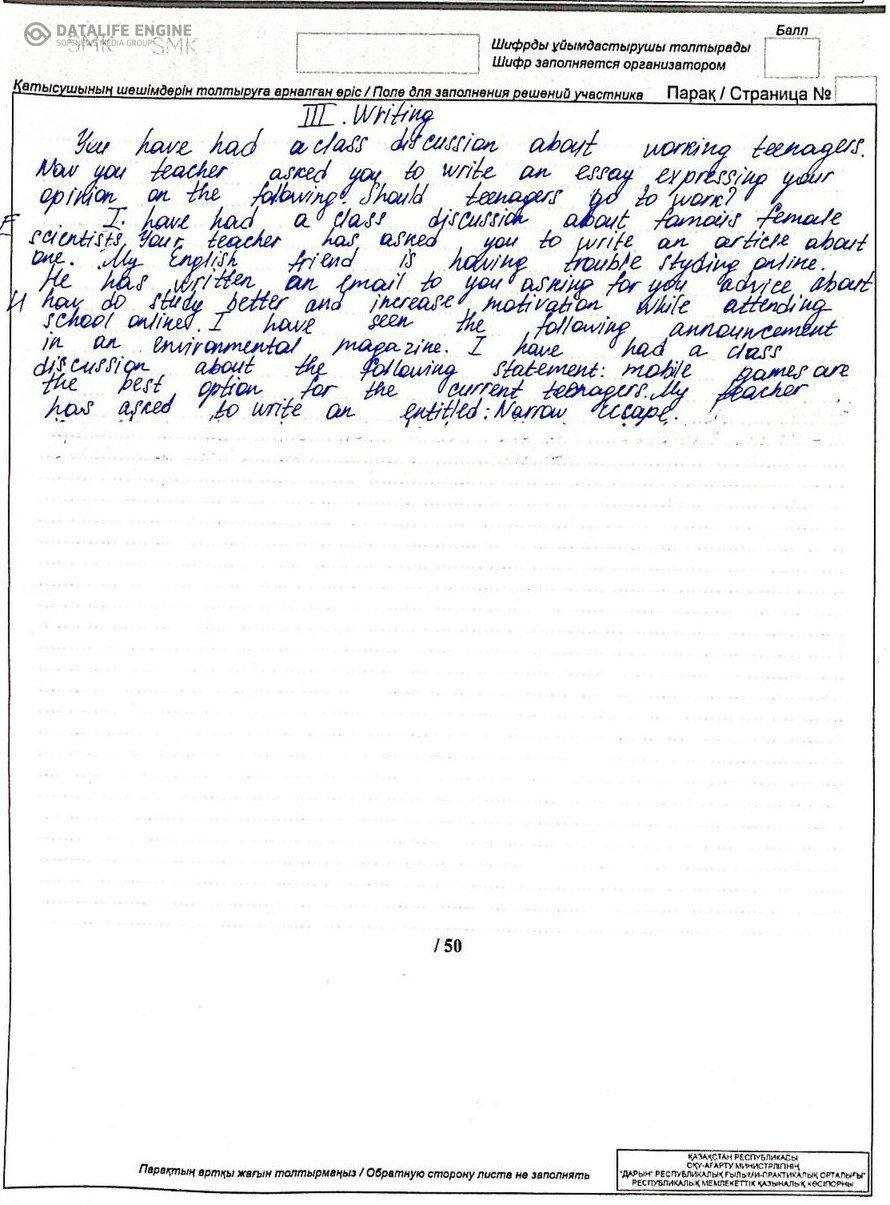 DATALIFE ENGINE
SOFTNEWS MEDIA GROUP
SMK SMK
Балл
Шифрды ұйымдастырушы толтырады
Шифр заполняется организатором
Қатысушының шешімдерін толтыруға арналған өріс / Поле для заполнения решений участника Парақ / Страница №
III. Writing
You have had a class discussion about working teenagers.
Now you teacher asked you to write an essay expressing your
opinion on the following. Should teenagers go to work?
I. have had a class discussion about famous female
scientists. Your teacher has asked you to write an article about
one. My English friend is having trouble styding online.
He has written an email to you asking for you advice about
how do study better and increase motivation while attending
school onlines. I have seen the following announcement
in an environmental magazine. I have had a class
discussion about the following statement: mobile games are
the best option for the current teenagers. My teacher
has asked to write an entitled: Narrow escape.
/ 50
Парақтың артқы жағын толтырмаңыз / Обратную сторону листа не заполнять
ҚАЗАҚСТАН РЕСПУБЛИКАСЫ
ОҚУ-АҒАРТУ МИНИСТРЛІГІНІҢ
"ДАРЫН" РЕСПУБЛИКАЛЫҚ ҒЫЛЫМИ-ПРАКТИКАЛЫҚ ОРТАЛЫҒЫ"
РЕСПУБЛИКАЛЫҚ МЕМЛЕКЕТТІК ҚАЗЫНАЛЫҚ КӘСІПОРНЫ